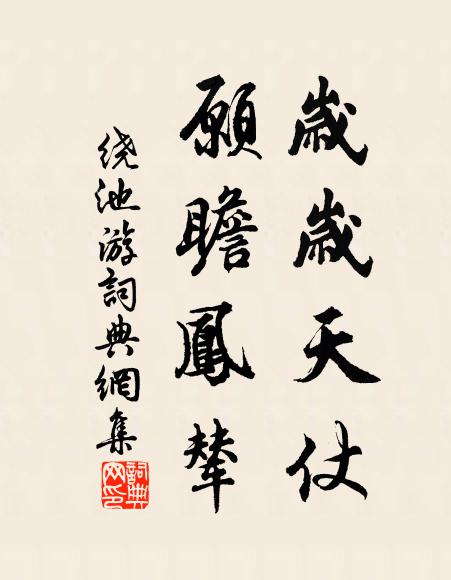 歲歲天仗
願瞻鳳輦
绕池游詞典網集
詞典
网印